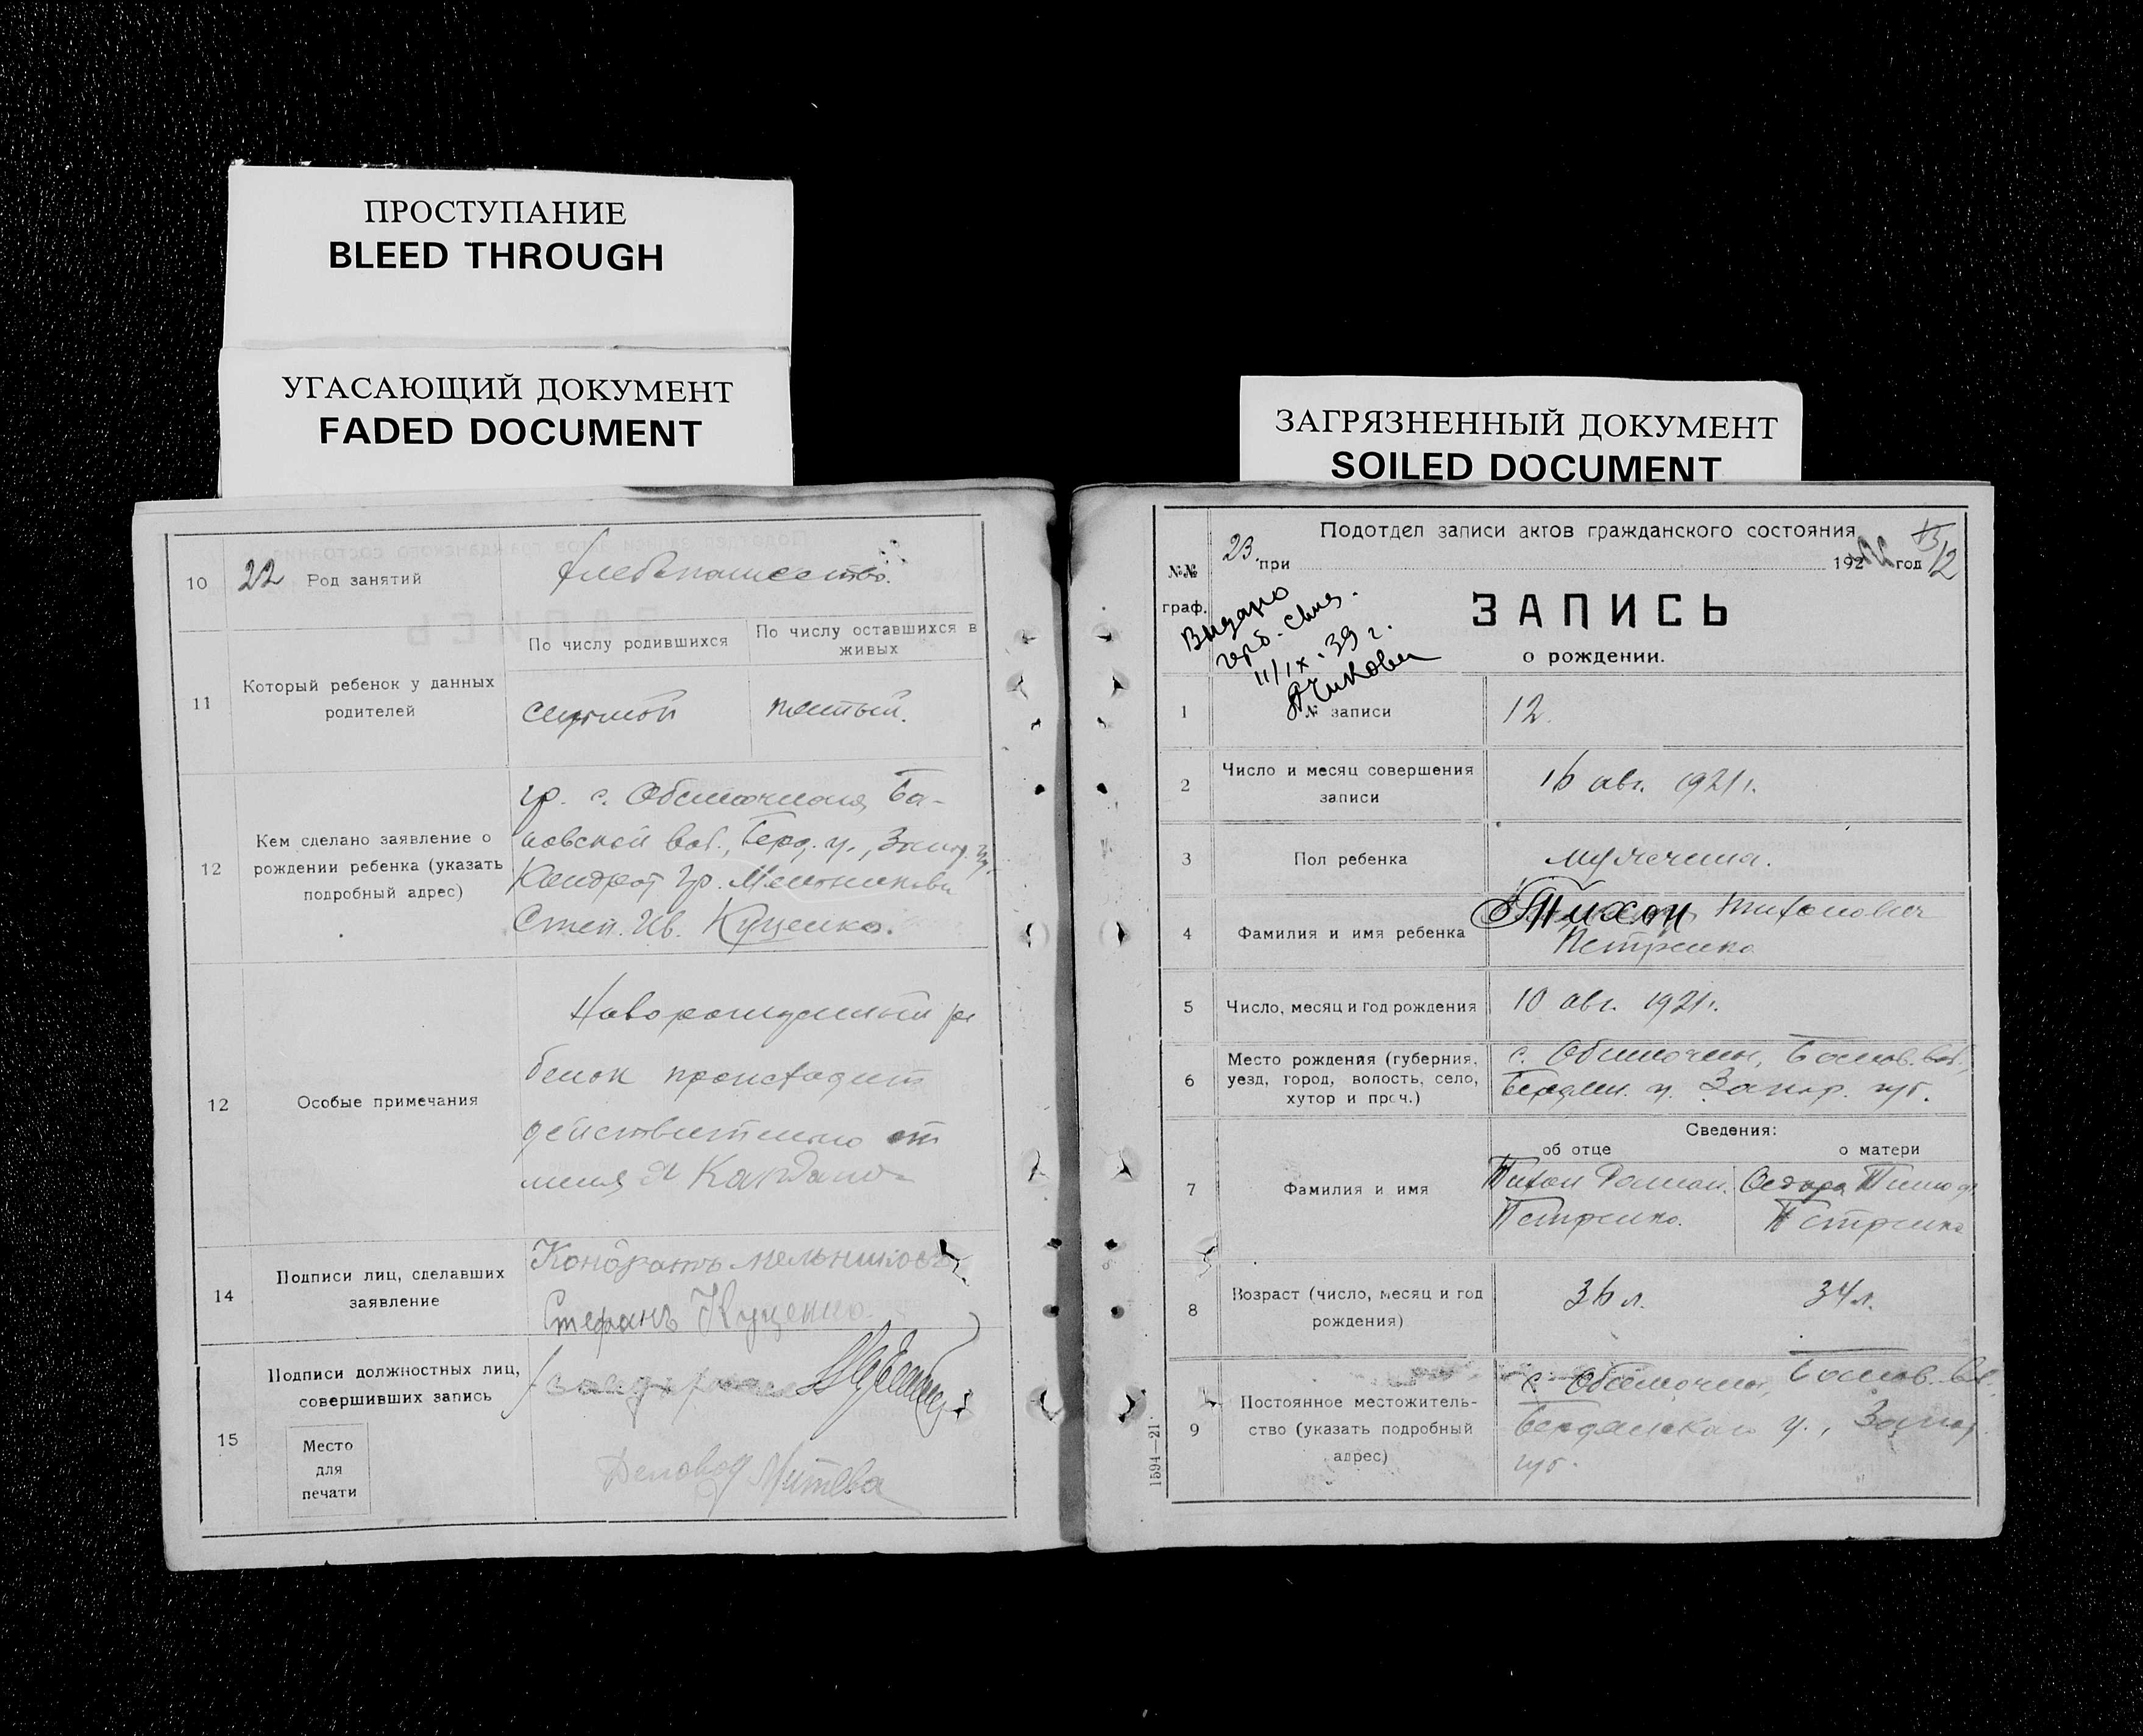 ПРОСТУПАНИЕ
BLEED THROUGH
УГАСАЮЩИЙ ДОКУМЕНТ
FADED DOCUMENT
ЗАГРЯЗНЕННЫЙ ДОКУМЕНТ
SOILED DOCUMENT
10
22
Род занятий
хлебопашество.
11
Который ребенок у данных
родителей
По числу родившихся
седьмой
По числу оставшихся в
живых
12
Кем сделано заявление о
рождении ребенка (указать
подробный адрес)
гр. с. Обиточная, Ба-
новской вол., Берд. у.,
Кондрат Гр. Мельников
Степ. Ив. Куценко.
12
Особые примечания
Новорожденный ре
бенок происходит
действительно от
меня
14
Подписи лиц, сделавших
заявление
Кондратъ Мельниковъ
Стефанъ Куценко
15
Подписи должностных лиц,
совершивших запись
Место
для
печати
Деловод Митева
23
Подотдел записи актов гражданского состояния
№№
граф.
при
192
год
12
ЗАПИСЬ
о рождении.
Выдано
II/IX-39 г.
1
№ записи
12.
2
Число и месяц совершения
записи
16 авг. 1921 г.
3
Пол ребенка
мужчина.
4
Фамилия и имя ребенка
Тихон Тихонович
Петренко
5
Число, месяц и год рождения
10 авг. 1921 г.
6
Место рождения (губерния,
уезд, город, волость, село,
хутор и проч.)
с. Обиточное, Банов. вол.,
Бердян. у. Запор. губ.
Сведения:
об отце
о матери
7
Фамилия и имя
Тихон Роман.
Петренко.
Федора Тимоф.
Петренко
8
Возраст (число, месяц и год
рождения)
36 л.
34 л.
9
Постоянное местожитель-
ство (указать подробный
адрес)
с. Обиточное, Банов. вол.
Бердянского у., Запор
губ.
1594—21.